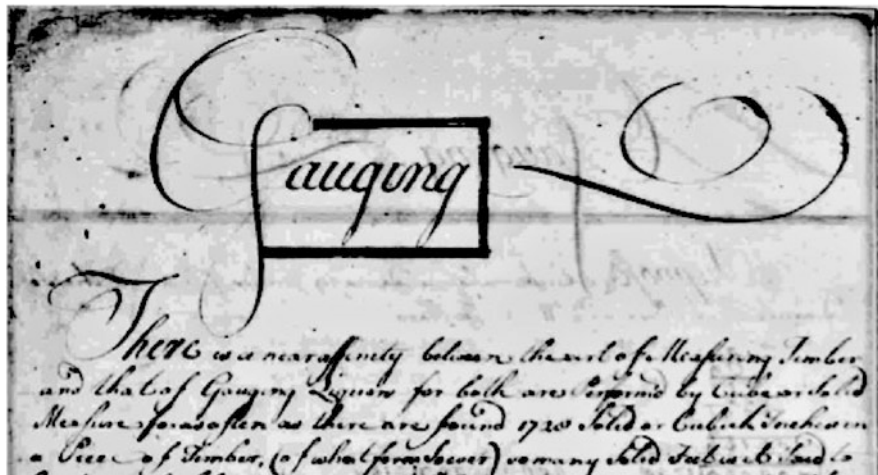 Gauging
There is a near affinity between the art of Measuring Timber
and that of Gauging Liquors for both are Performed by Cube or Solid
Measure for as often as there are found 1728 Solid or Cubick Inches in
a Piece of Timber, (of what form soever) so many Solid Feet is it Said to